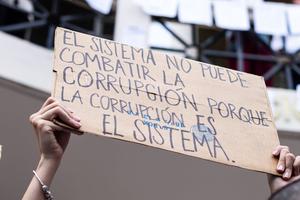 EL SISTEMA NO PUEDE
COMBATIR LA
CORRUPCIÓN PORQUE
LA CORRUPCIÓN ES
EL SISTEMA.